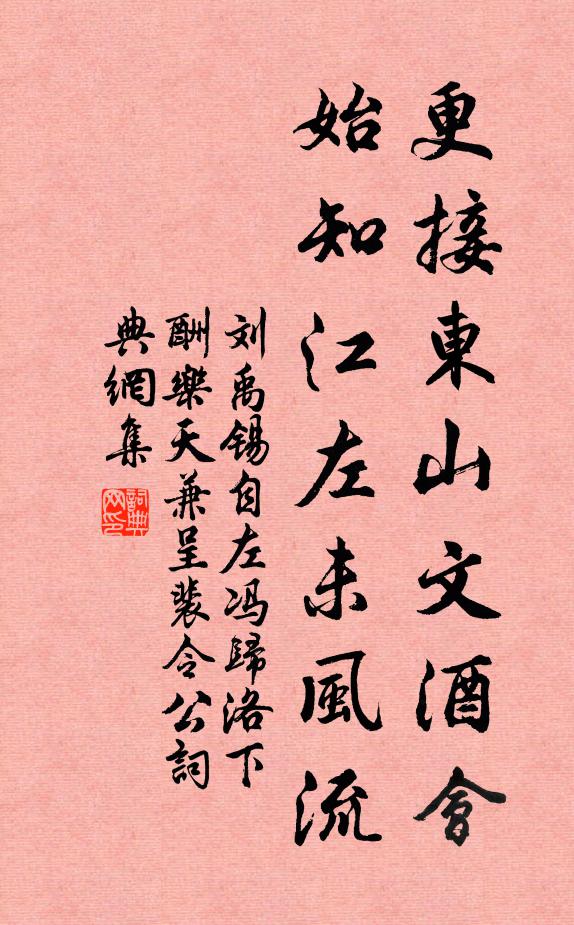 更接東山文酒會
始知江左未風流
刘禹锡自左冯歸洛下
酬樂天兼呈裴令公詞
典網集
詞典
网印